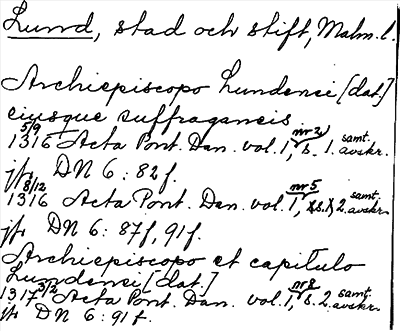 Lund, stad och stift, Malm.l.
Archiepiscopo Lundensi [dat.]
eiusque suffraganeis
5/9 1316 Acta Pont. Dan. vol. 1, nr 2, s. 1. samt. avskr.
jfr DN 6: 82 f.
8/12 1316 Acta Pont. Dan. vol. 1, nr 5, s. 2. samt. avskr.
jfr DN 6: 87 f, 91 f.
Archiepiscopo et capitulo
Lundensi [dat.]
1317 3/2 Acta Pont. Dan. vol. 1, nr 8, s. 2. samt. avskr.
jfr DN 6: 91 f.